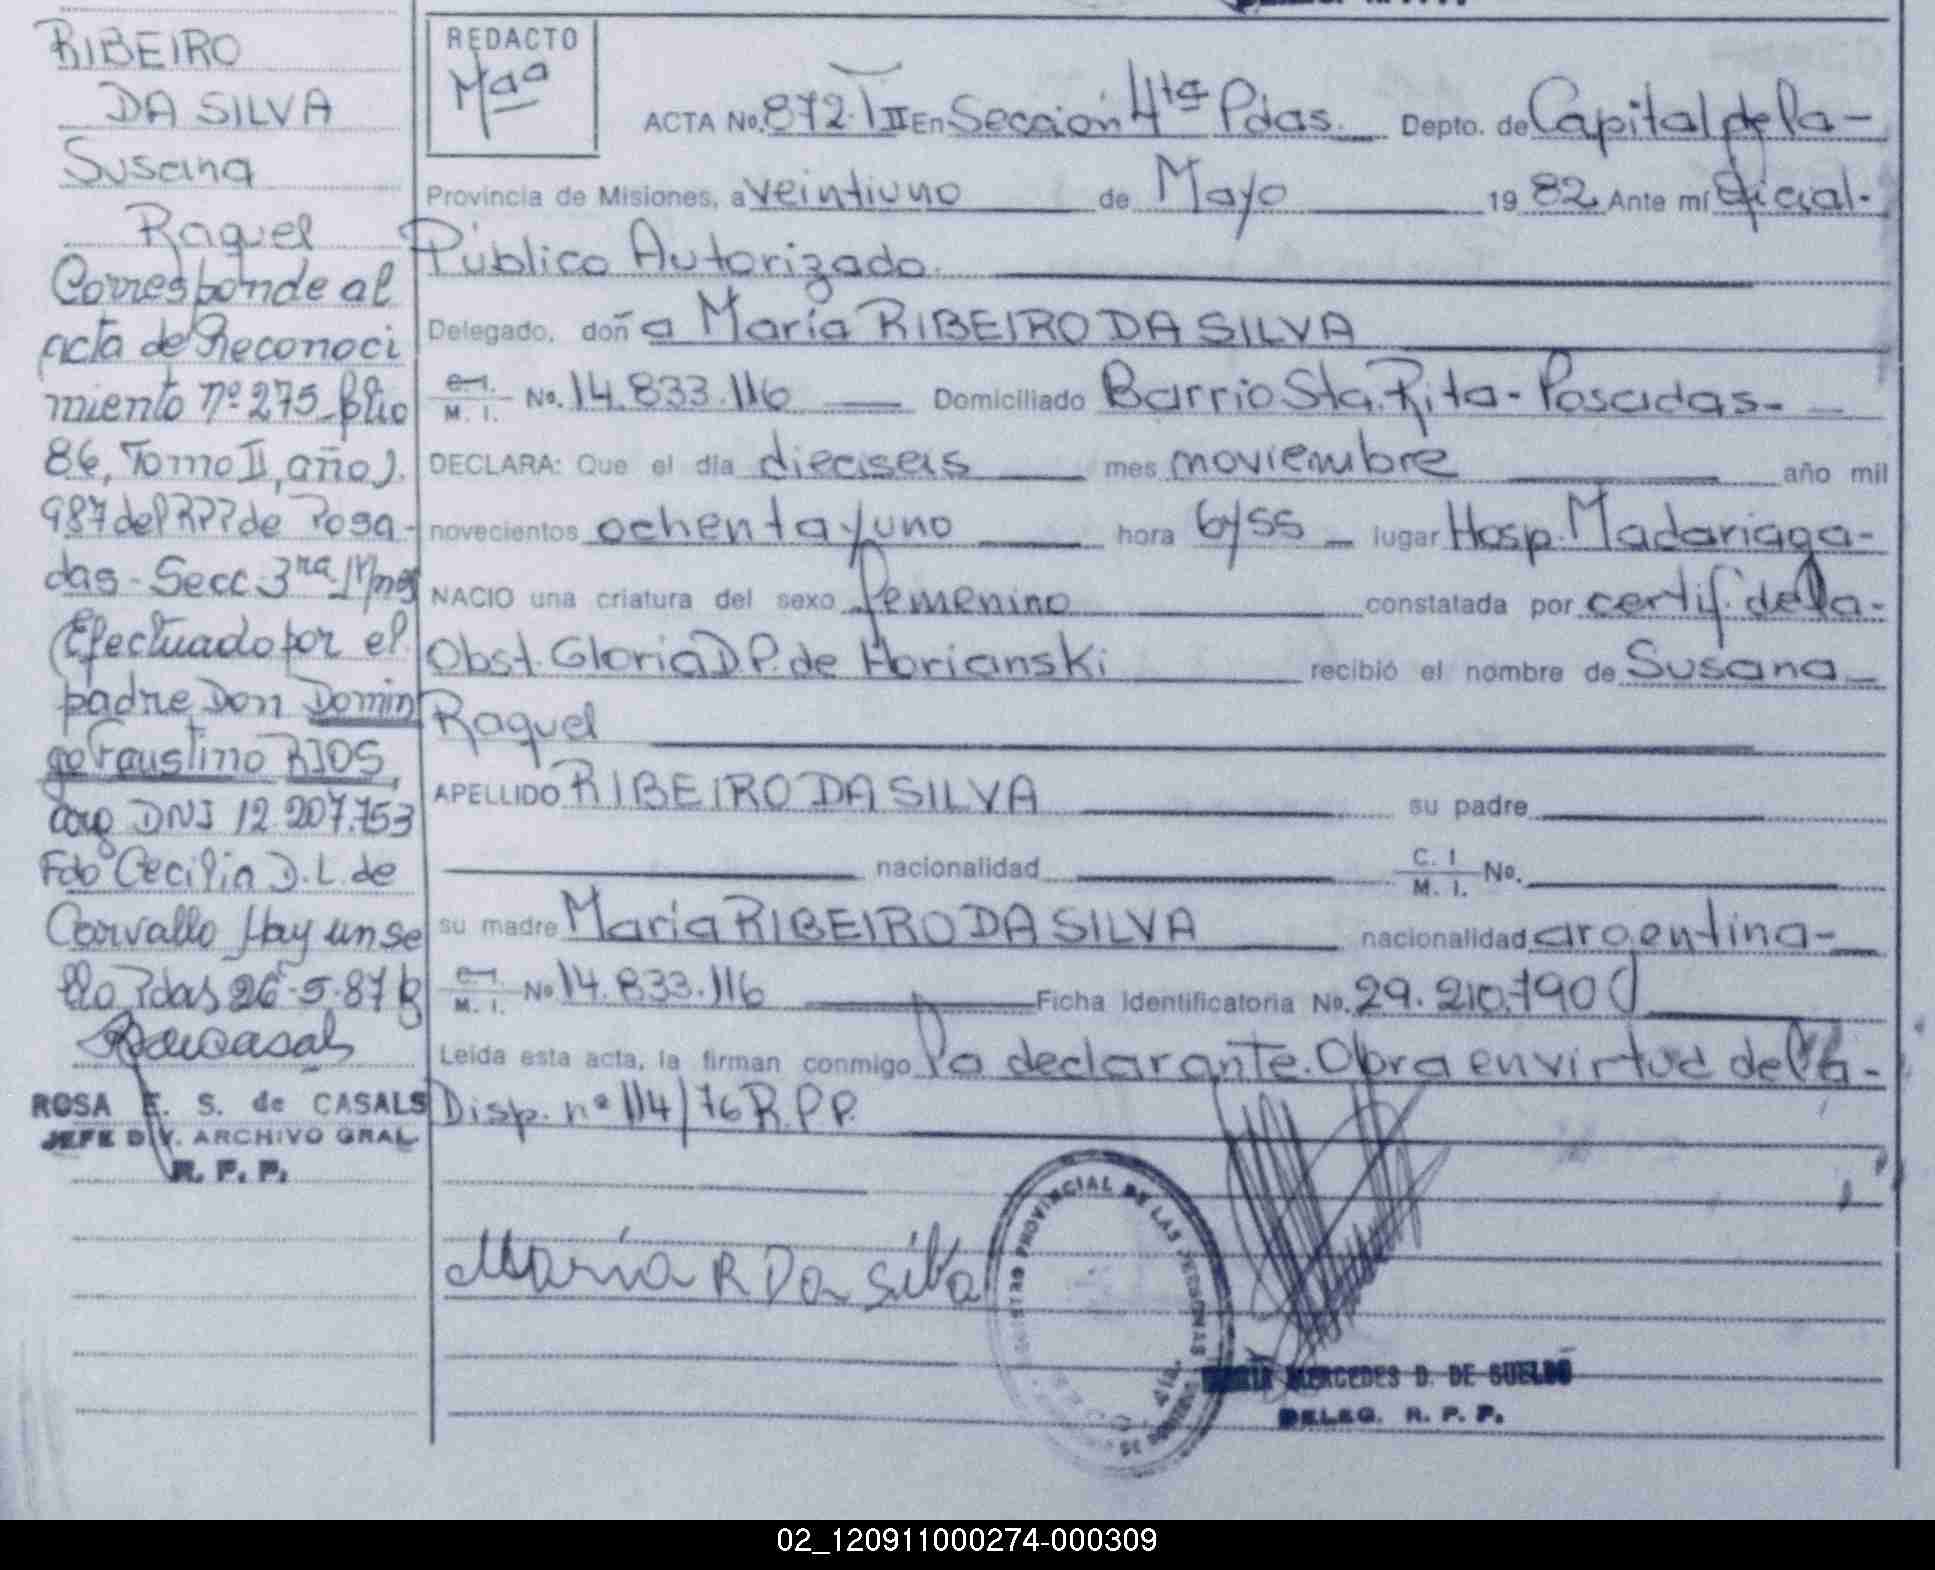 RIBEIRO
DA SILVA
Susana
Raquel
Corresponde al
acta de Reconoci
miento nº 275 folio
86, Tomo II, año 1.
987 del RPP de Posa-
das - Secc. 3ra Mnes
Efectuado por el
padre Don Domin
go Faustino RIOS,
arg DNI 12.207.753
Fdo Cecilia D. L. de
Carvallo Hay un se
llo Pdas 26-5-87
ROSA E. S. de CASALS
JEFE DIV. ARCHIVO GRAL
R. P. P.
REDACTO
Maa
ACTA No. 872. T II En Sección 4ta Pdas. Depto. de Capital de la-
Provincia de Misiones, a veintiuno de Mayo 1982 Ante mí Oficial-
Público Autorizado.
Delegado, doña María RIBEIRO DA SILVA
C. I. M. I. No. 14.833.116 Domiciliado Barrio Sta. Rita - Posadas-
DECLARA: Que el día dieciseis mes noviembre año mil
novecientos ochenta y uno hora 6 y 55 lugar Hosp. Madariaga-
NACIO una criatura del sexo femenino constatada por certif. de la-
Obst. Gloria D P. de Horianski recibió el nombre de Susana
Raquel
APELLIDO RIBEIRO DA SILVA su padre
nacionalidad C. I. M. I. No.
su madre María RIBEIRO DA SILVA nacionalidad argentina-
C. I. M. I. No 14.833.116 Ficha Identificatoria No. 29.210.790
Leída esta acta, la firman conmigo la declarante. Obra en virtud de la-
Disp. nº 114/76 R.P.P.
María R Da Silva
REGISTRO PROVINCIAL DE LAS PERSONAS
MARIA MERCEDES D. DE SUELDO
DELEG. R. P. P.
02_120911000274-000309